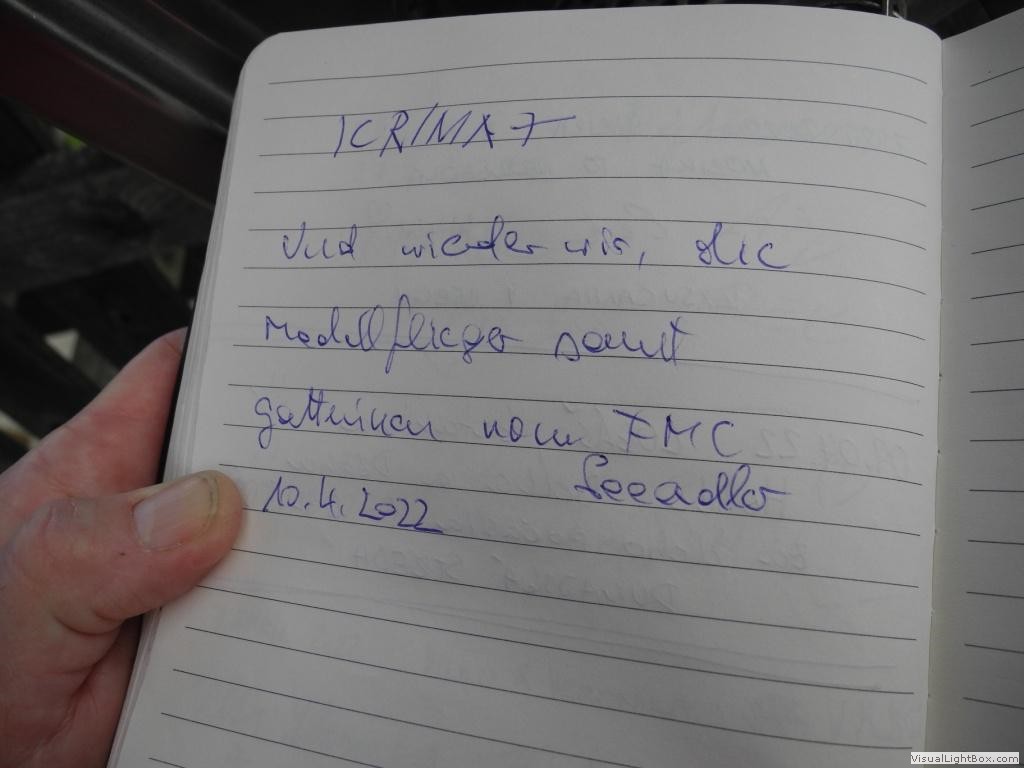 KRIMA 7
Und wieder wir, die
Modellflieger samt
gattinnen vom FMC
Seeadler
10.4.2022
VisualLightBox.com